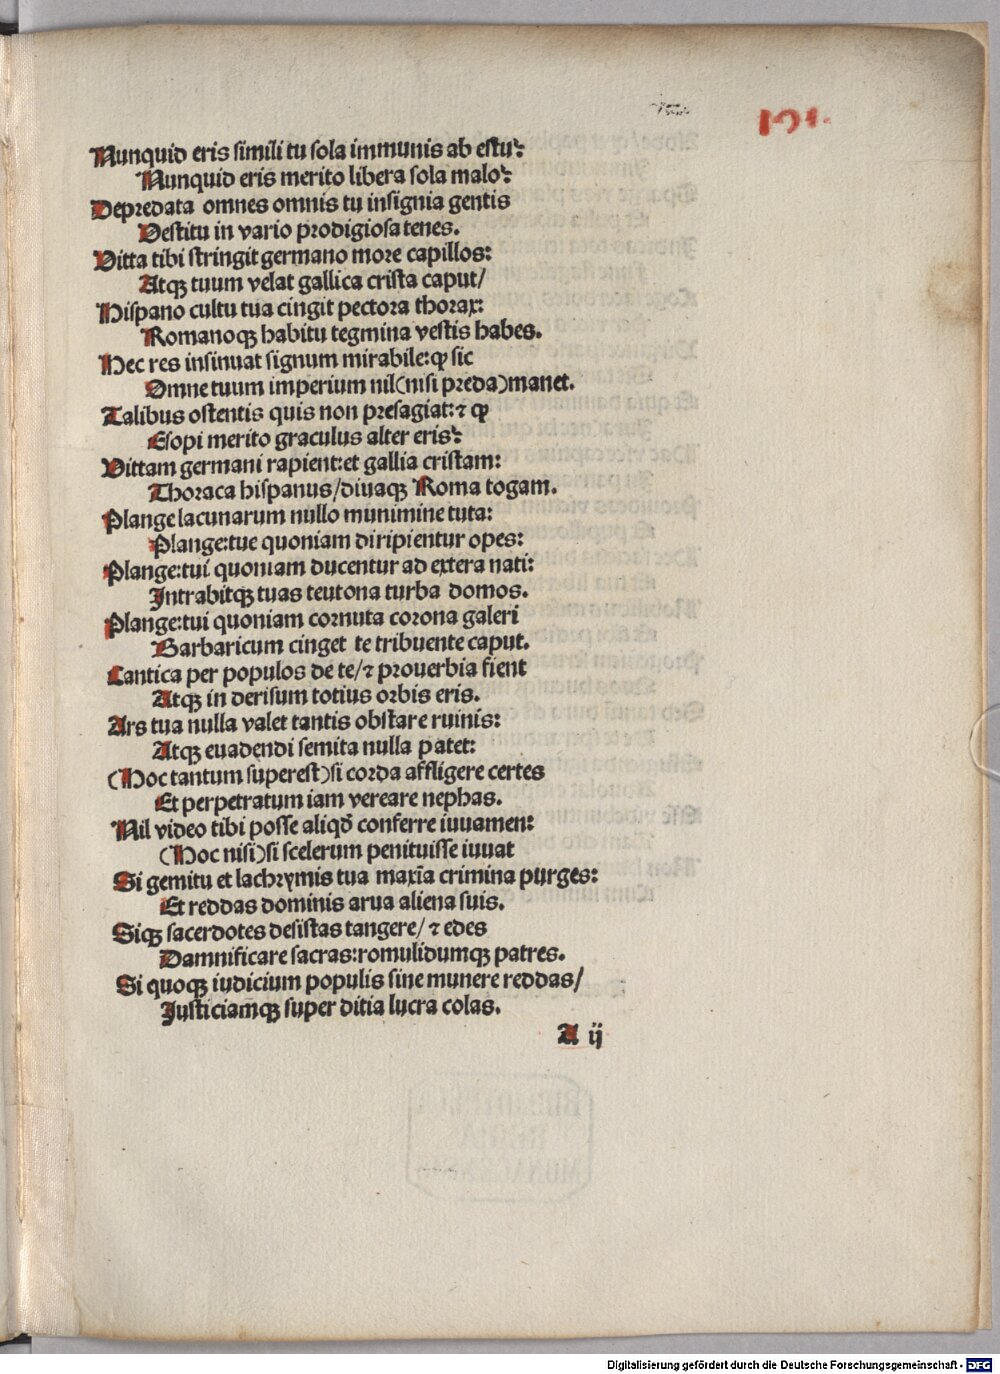 121.
Nunquid eris simili tu sola immunis ab estu?
Nunquid eris merito libera sola malo?
Depredata omnes omnis tu insignia gentis
Vestitu in vario prodigiosa tenes.
Vitta tibi stringit germano more capillos:
Atqꝫ tuum velat gallica crista caput/
Hispano cultu tua cingit pectora thorax:
Romanoqꝫ habitu tegmina vestis habes.
Hec res insinuat signum mirabile: ꝙ sic
Omne tuum imperium nil(nisi preda)manet.
Talibus ostentis quis non presagiat: ⁊ ꝙ
Esopi merito graculus alter eris?
Vittam germani rapient: et gallia cristam:
Thoraca hispanus/diuaqꝫ Roma togam.
Plange lacunarum nullo munimine tuta:
Plange: tue quoniam diripientur opes:
Plange: tui quoniam ducentur ad extera nati:
Intrabitqꝫ tuas teutona turba domos.
Plange: tui quoniam cornuta corona galeri
Barbaricum cinget te tribuente caput.
Cantica per populos de te/⁊ prouerbia fient
Atqꝫ in derisum totius orbis eris.
Ars tua nulla valet tantis obstare ruinis:
Atqꝫ euadendi semita nulla patet:
(Hoc tantum superest)si corda affligere certes
Et perpetratum iam vereare nephas.
Nil video tibi posse aliqd̄ conferre iuuamen:
(Hoc nisi)si scelerum penituisse iuuat
Si gemitu et lachrymis tua maxīa crimina purges:
Et reddas dominis arua aliena suis.
Siqꝫ sacerdotes desistas tangere/ ⁊ edes
Damnificare sacras: romulidumqꝫ patres.
Si quoqꝫ iudicium populis sine munere reddas/
Justiciamqꝫ super ditia lucra colas.
A ij
Digitalisierung gefördert durch die Deutsche Forschungsgemeinschaft - DFG